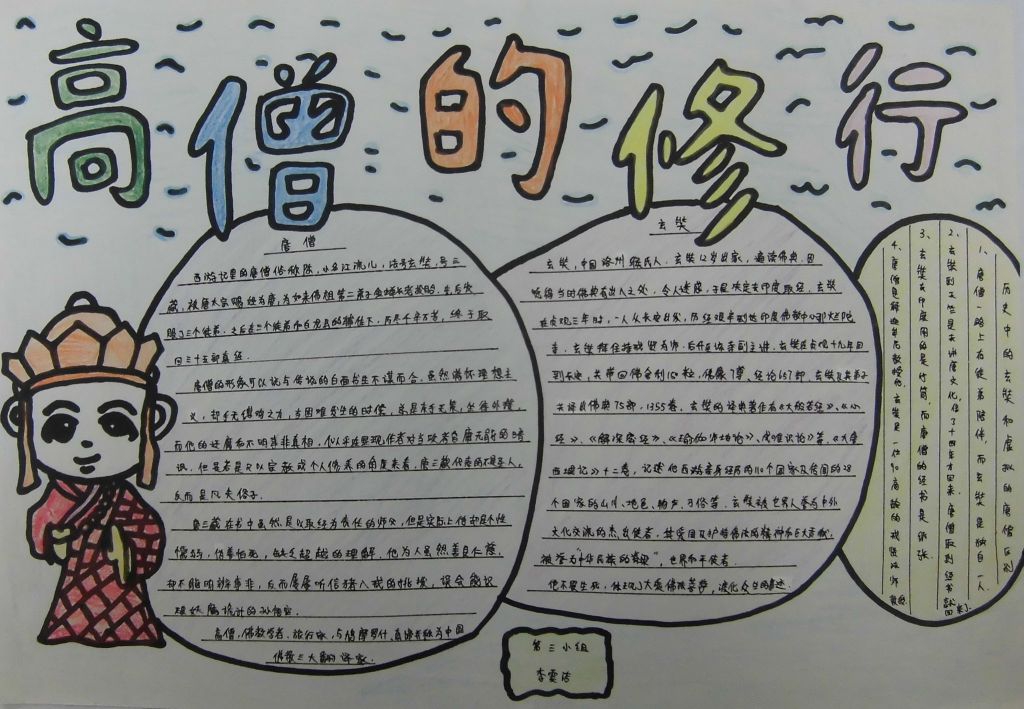 高僧的修行
唐僧
西游记里的唐僧俗姓陈，小名江流儿，法号玄奘，号三
藏，被唐太宗赐姓为唐，为如来佛祖第二弟子金蝉长老投胎。
赐了三个徒弟，之后在三个徒弟和白龙马的辅佐下，历尽千辛万苦，终于取
回三十五部真经。
唐僧的形象可以说与传说的白面书生不谋而合，虽然满怀理想主
义，却手无缚鸡之力，
而他的迂腐和不明事非真相，似乎在
识，但是若是只以宗教或个人修养的角度来看，唐三藏代表的不是圣人，
反而是凡夫俗子。
唐三藏在书中虽然是以取经为责任的师父，但是实际上信宗是个性
懦弱，伪善怕死，缺乏超越的理解，他为人虽然善良仁慈，
却不能明辨事非，反而屡屡听信猪八戒的挑拨，误会能识
破妖魔诡计的孙悟空。
高僧，佛教学者，旅行家，与鸠摩罗什、真谛并称为中国
佛教三大翻译家。
玄奘
玄奘，中国洛州缑氏人，玄奘12岁出家，遍读佛典，因
感得当时佛典有出入之处，令人迷惑，于是决定去印度取经，玄奘
在贞观三年时，一人从长安出发，历经艰辛到达印度佛教中心那烂陀
寺，玄奘拜住持戒贤为师，后升任该寺副主讲，玄奘在贞观十九年回
到长安，共带回佛舍利150粒，佛像7尊，经论657部，玄奘及其弟子
共译出佛典75部，1335卷，玄奘的译典著作有《大般若经》、《心
经》、《解深密经》、《瑜伽师地论》、《成唯识论》等。《大唐
西域记》十二卷，记述他西游亲身经历的110个国家及传闻的28
个国家的山川、地邑、物产、习俗等，玄奘被世界人誉为中外
文化交流的杰出使者，其爱国及护持佛法的精神和巨大贡献，
被誉为“中华民族的脊梁”，世界和平使者。
他不畏生死，体现了大乘佛法菩萨，渡化众生的事迹。
历史中的玄奘和虚拟的唐僧区别
1、唐僧一路上有徒弟陪伴，而玄奘是独自一人。
2、玄奘到天竺是去讲唐文化，待了十四年才回来，唐僧取到经书就回来了。
3、玄奘去印度用的是竹简，而唐僧的经书是纸张。
4、唐僧是
第三小组